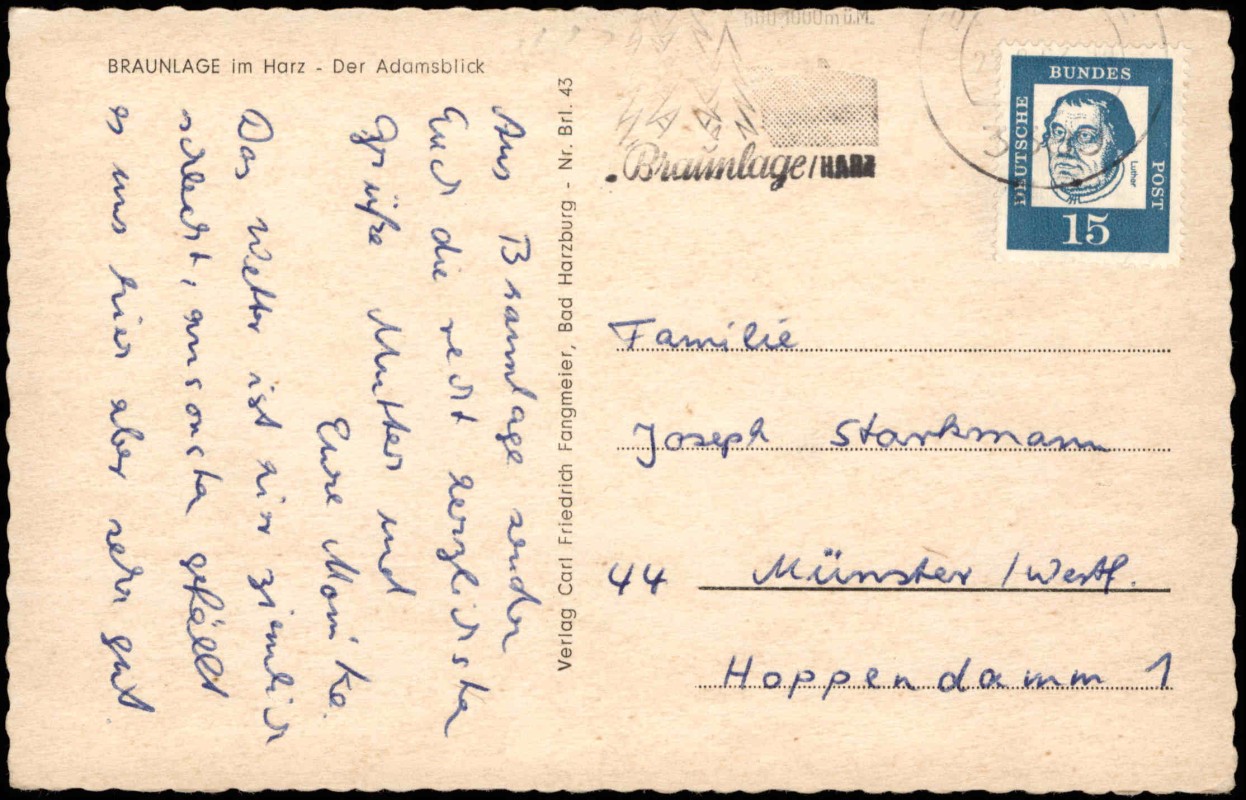 BRAUNLAGE im Harz - Der Adamsblick
Aus Braunlage senden
Euch die recht herzlichsten
Grüße Mutter und
Eure Monika.
Das Wetter ist hier ziemlich
schlecht, ansonsten gefällt
es uns hier aber sehr gut.
Verlag Carl Friedrich Fangmeier, Bad Harzburg - Nr. Brl. 43
Braunlage/HARZ
DEUTSCHE
BUNDES
POST
Luther
15
Familie
Joseph Starkmann
44 Münster/Westf.
Hoppendamm 1